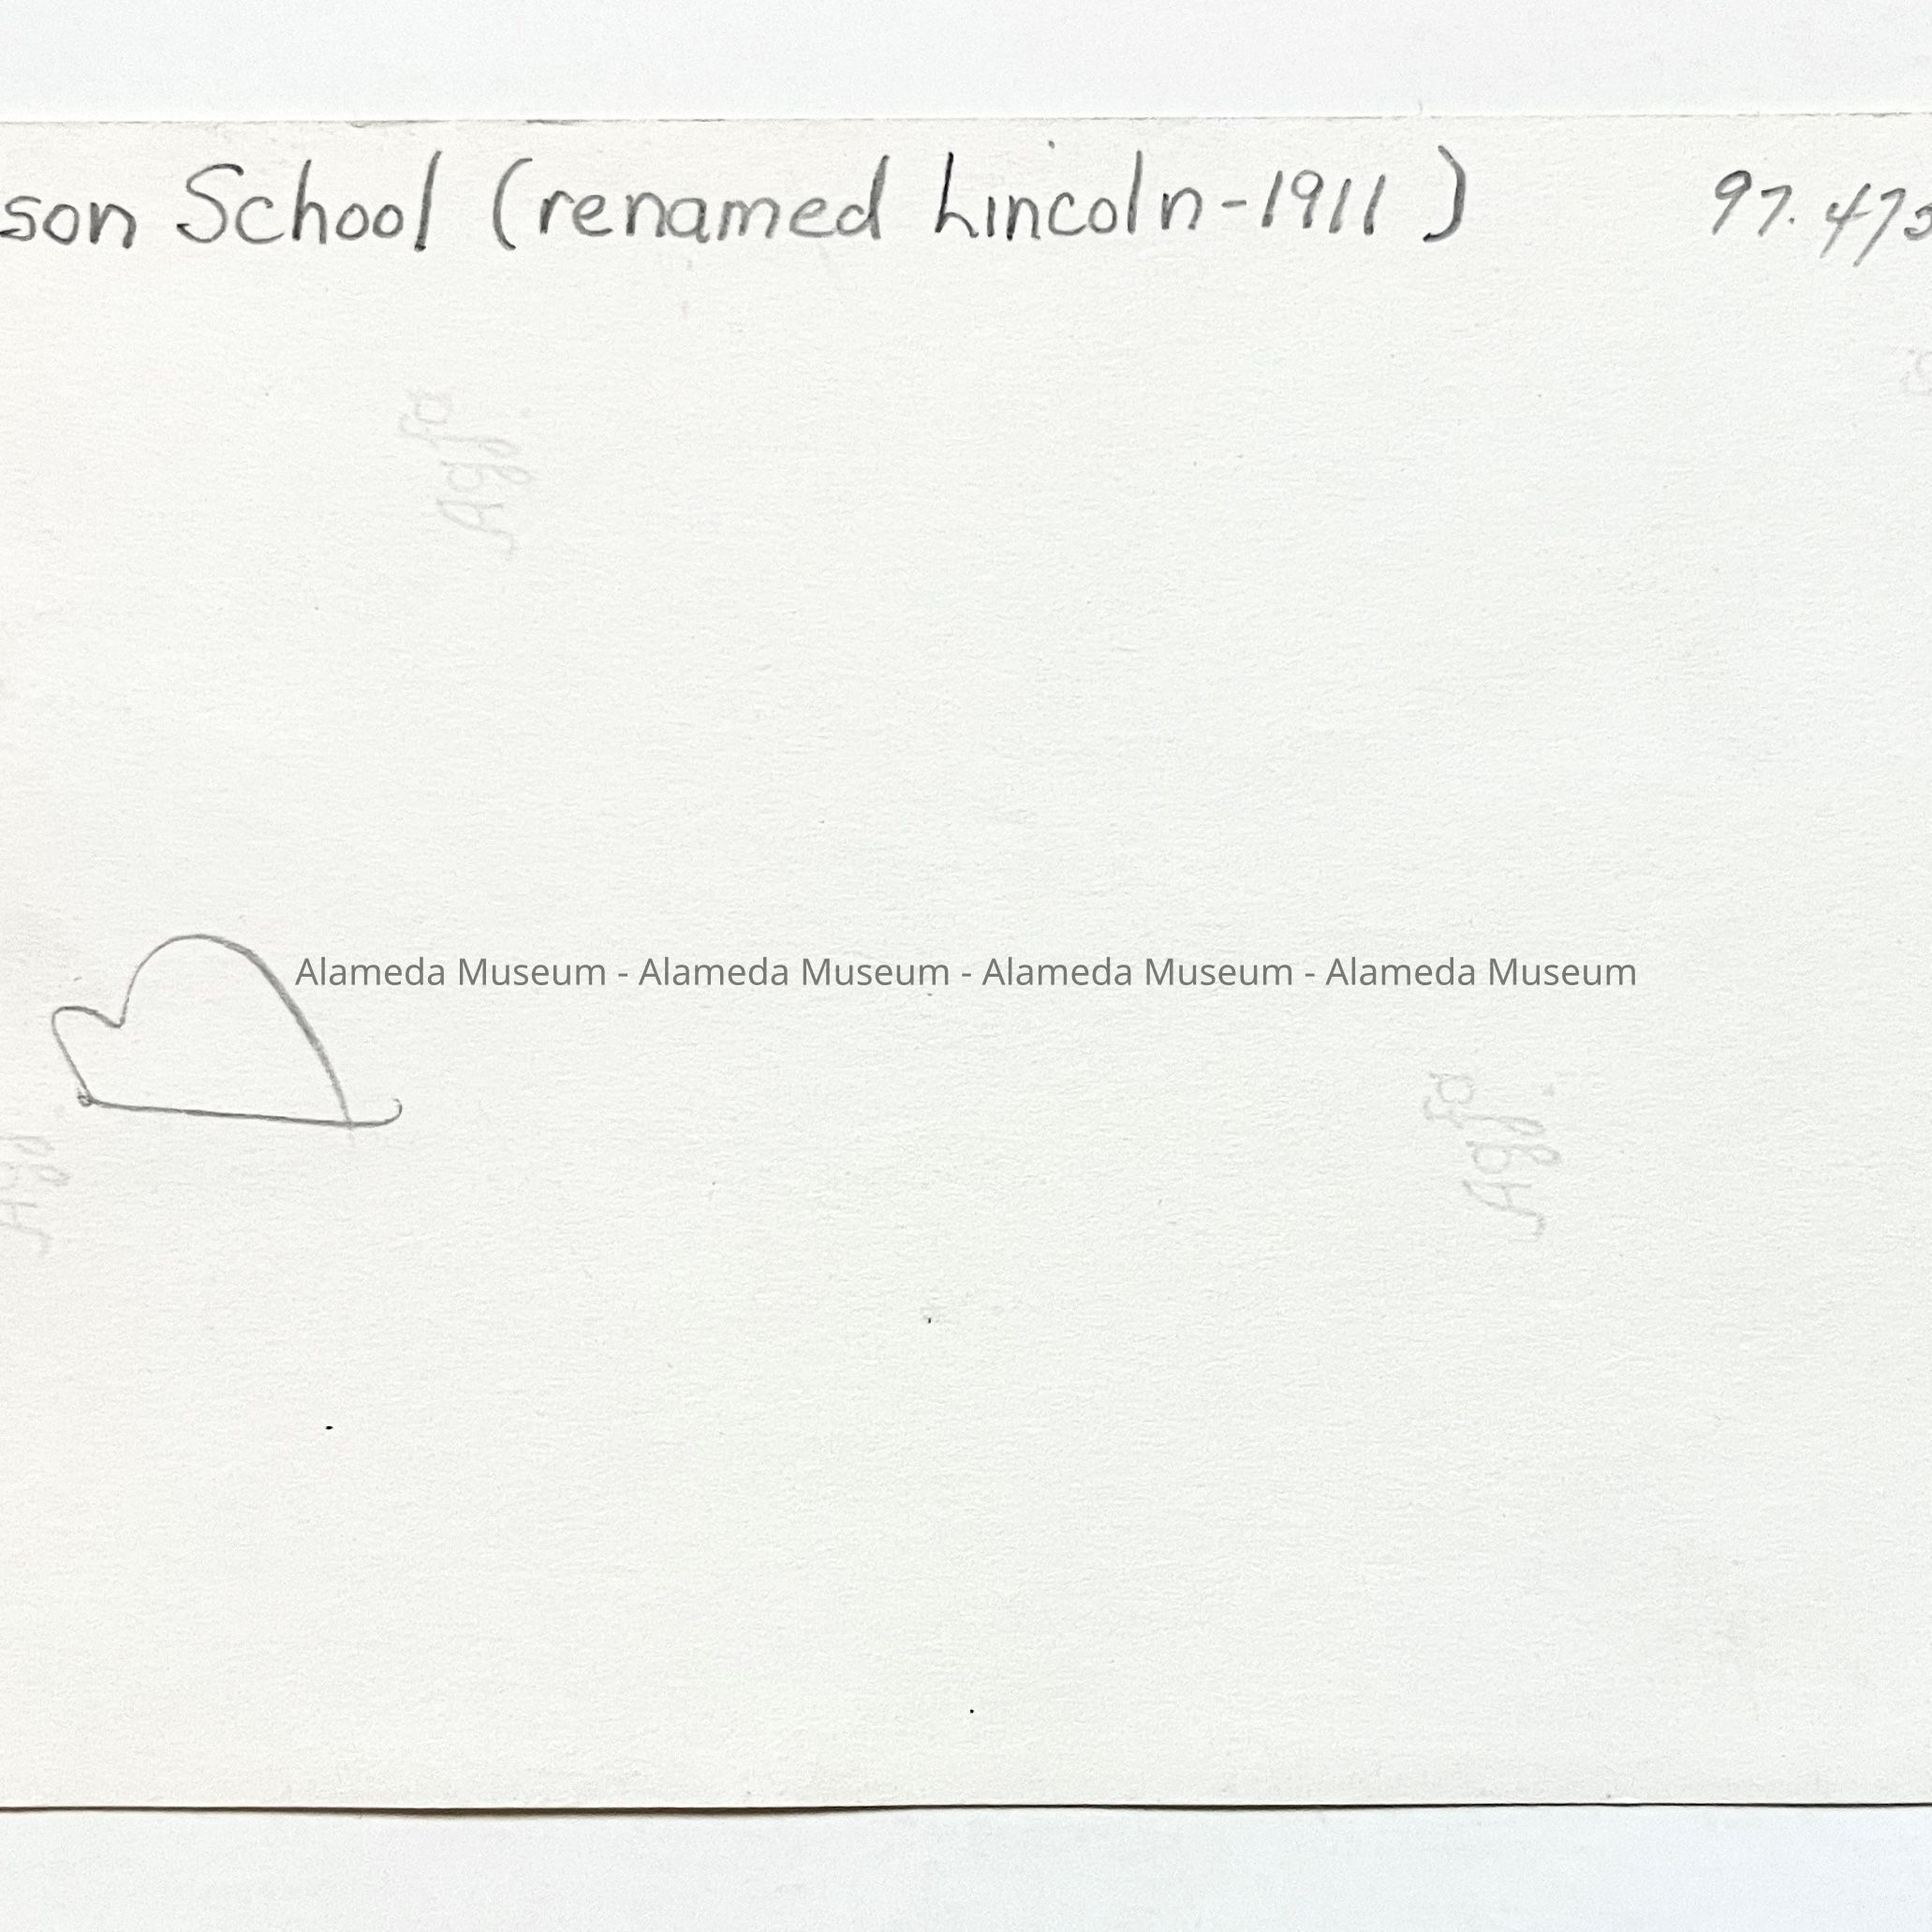 son School (renamed Lincoln-1911) 97.47
Agfa
Alameda Museum - Alameda Museum - Alameda Museum - Alameda Museum
Agfa